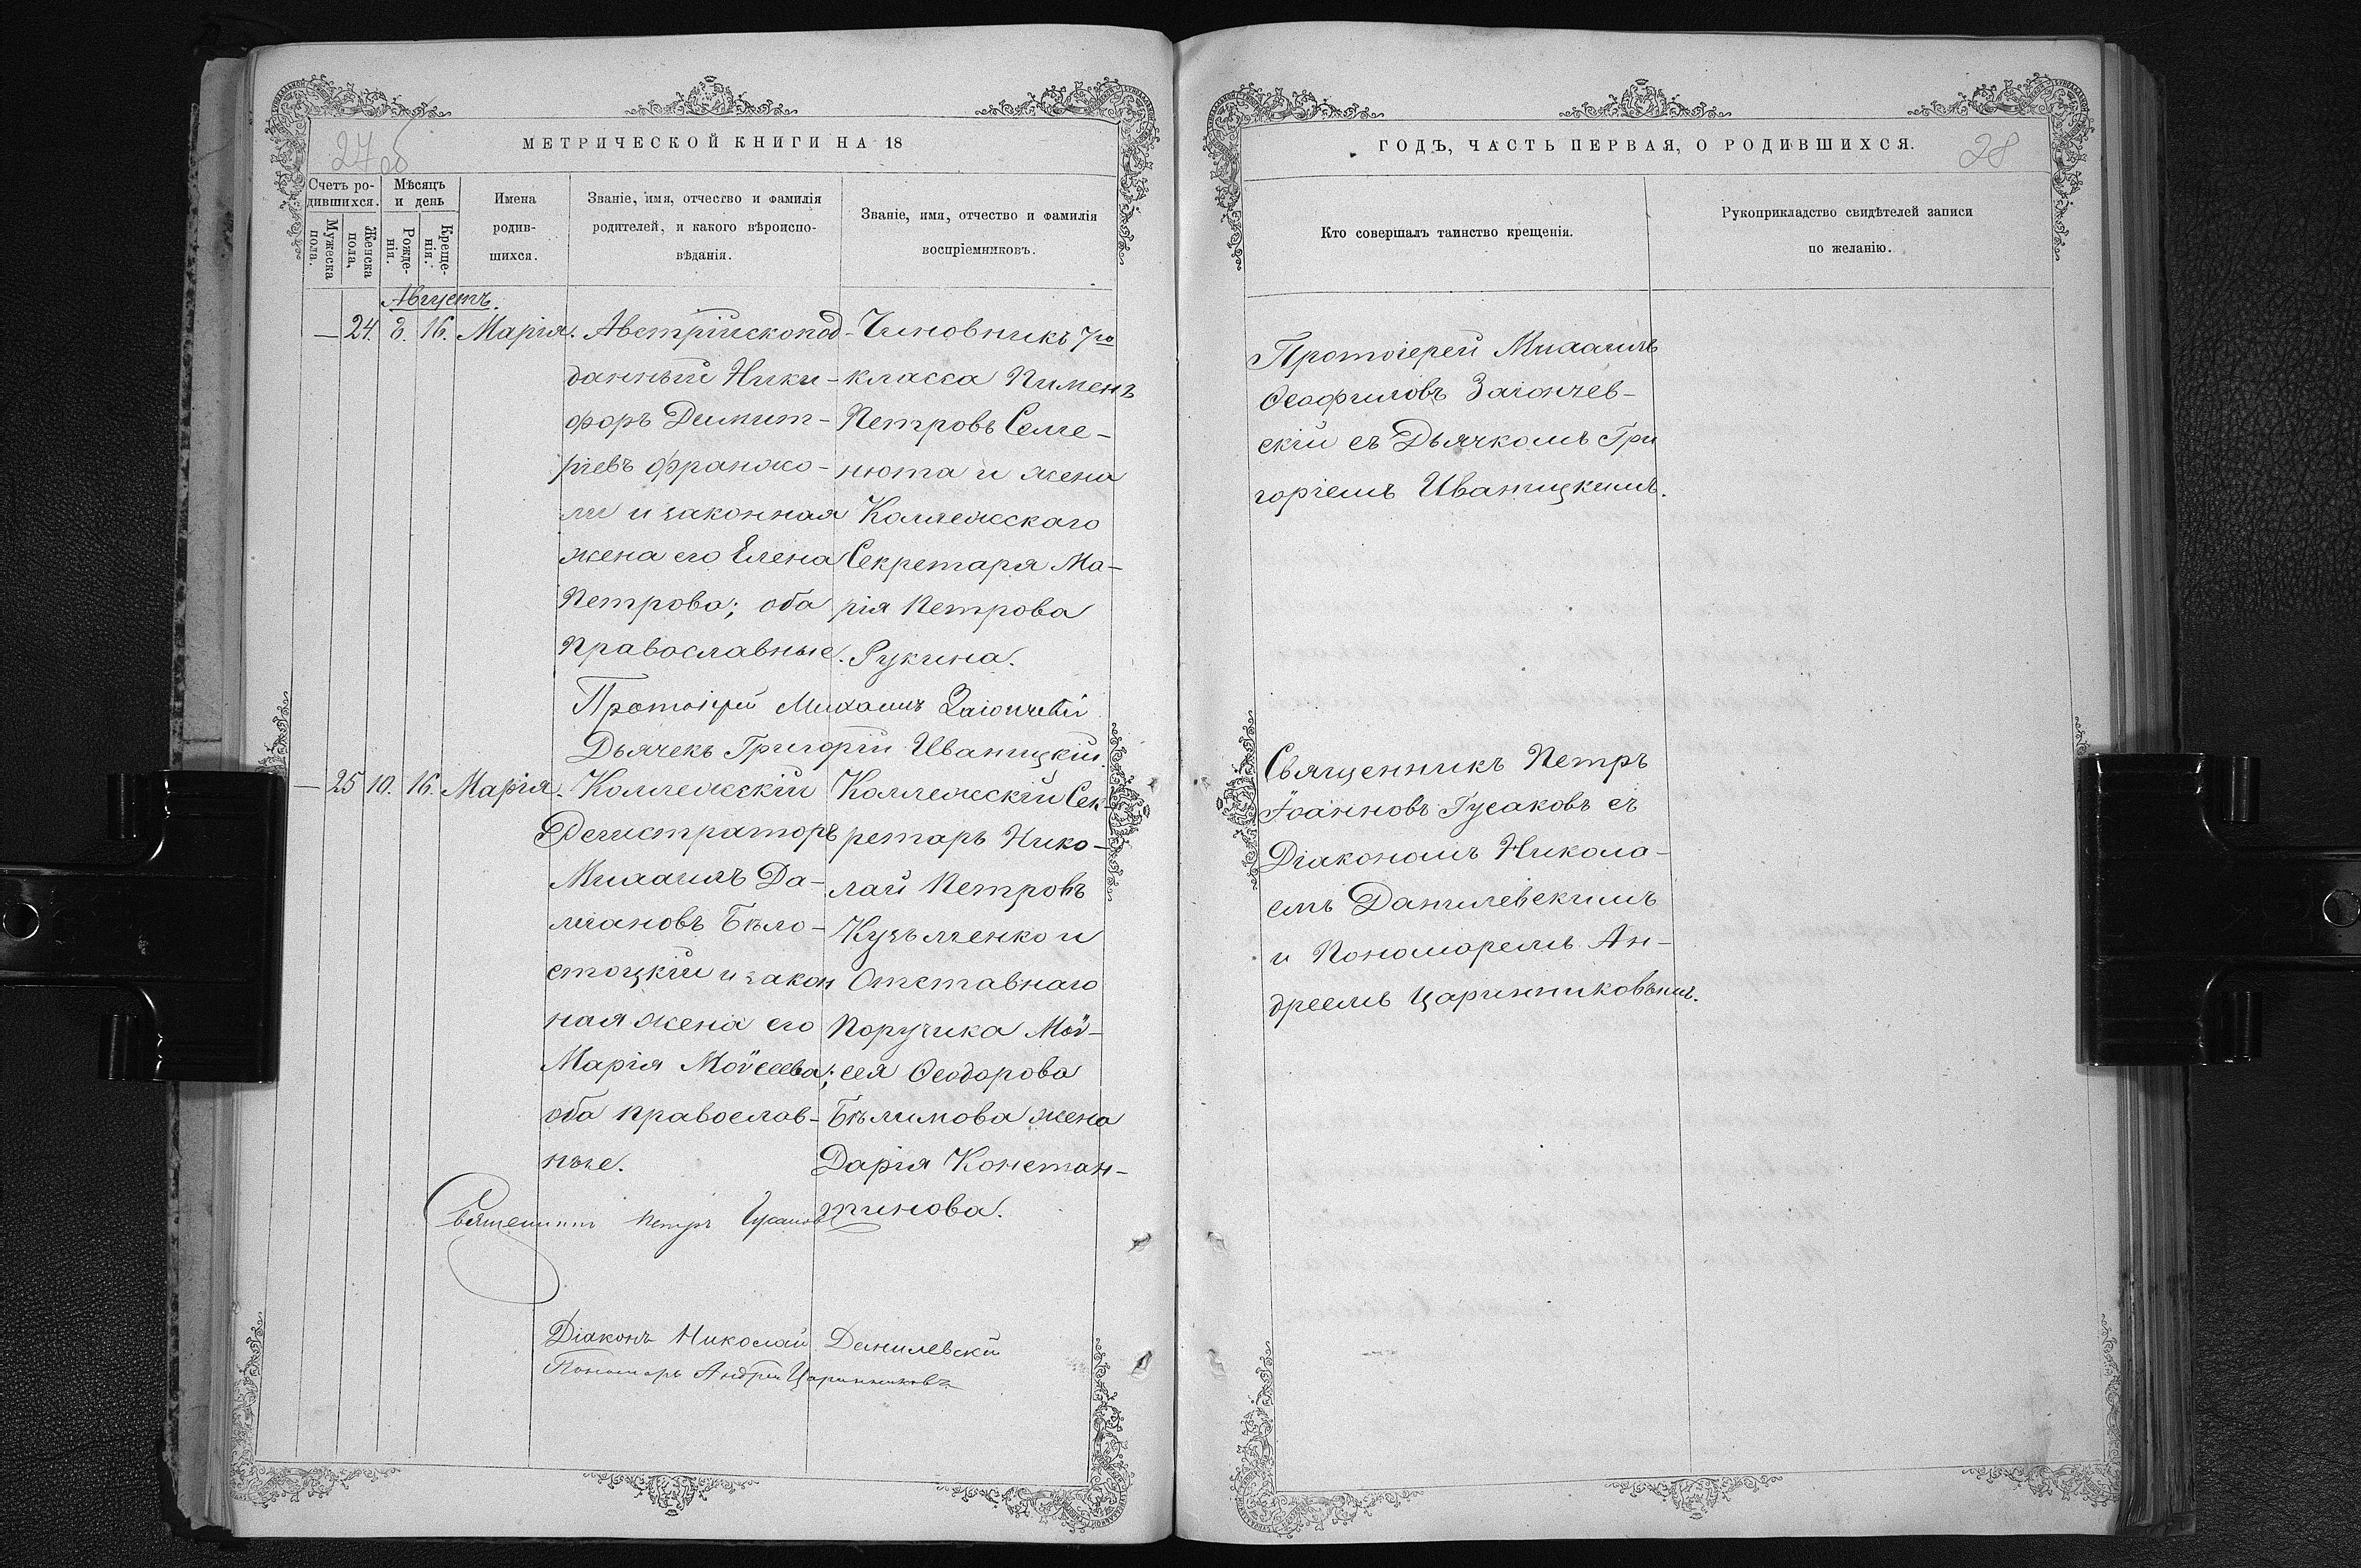 27 об
МЕТРИЧЕСКОЙ КНИГИ НА 18
Счетъ ро-
дившихся.
Мужеска
пола.
Женска
пола,
Мѣсяцъ
и день
Рожде-
нія.
Креще-
нія.
Имена
родив-
шихся.
Званіе, имя, отчество и фамилія
родителей, и какого вѣроиспо-
вѣданія.
Званіе, имя, отчество и фамилія
воспріемниковъ.
Августъ.
— 24. 8. 16. Марія.
Австрійскопод-
данный Ники-
форъ Димит-
ріевъ Франжо-
ли и законная
жена его Елена
Петрова; оба
православные.
Чиновникъ 7го
класса Пименъ
Петровъ Селе-
нюта и жена
Коллежскаго
Секретаря Ма-
рія Петрова
Рукина.
Протоіерей Михаилъ Заіончевскій
Дьячекъ Григорій Иваницкій.
— 25 10. 16. Марія.
Коллежскій
Регистраторъ
Михаилъ Да-
міановъ Бѣло-
стоцкій и закон
ная жена его
Марія Моѵсеева;
оба православ-
ные.
Коллежскій Сек-
ретарь Нико-
лай Петровъ
Кузьменко и
Отставнаго
Поручика Моѵ-
сея Ѳеодорова
Бѣлимова жена
Дарія Констан-
тинова.
Священникъ Петръ Гусаковъ
Діаконъ Николай Данилевскій
Пономарь Андрей Царинниковъ
ГОДЪ, ЧАСТЬ ПЕРВАЯ, О РОДИВШИХСЯ.
28
Кто совершалъ таинство крещенія.
Рукоприкладство свидѣтелей записи
по желанію.
Протоіерей Михаилъ
Ѳеофиловъ Заіончев-
скій съ Дьячкомъ Гри
горіемъ Иваницкимъ.
Священникъ Петръ
Іоанновъ Гусаковъ съ
Діакономъ Никола-
емъ Данилевскимъ
и Пономаремъ Ан-
дреемъ Царинниковымъ.